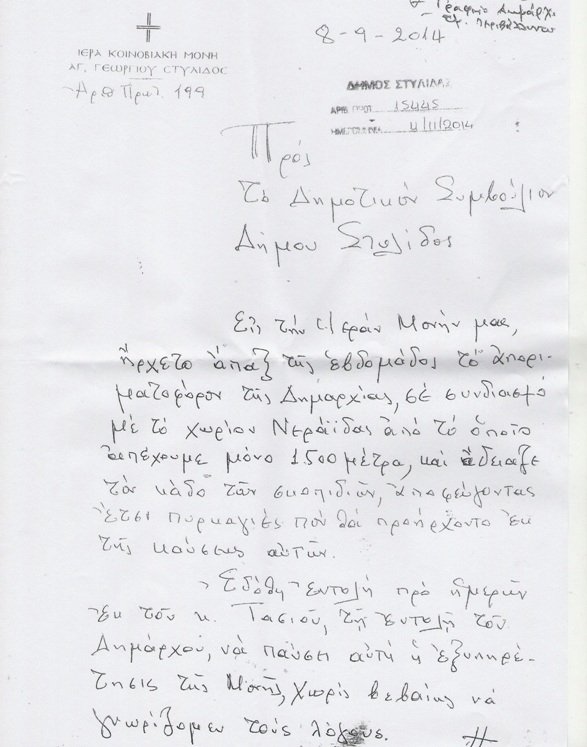 Γραφείο Δημάρχ
8-9-2014
ΙΕΡΑ ΚΟΙΝΟΒΙΑΚΗ ΜΟΝΗ
ΑΓ. ΓΕΩΡΓΙΟΥ ΣΤΥΛΙΔΟΣ
Αρθ Πρωτ. 199
ΔΗΜΟΣ ΣΤΥΛΙΔΑΣ
ΑΡΙΘ ΠΡΩΤ 15445
ΗΜΕΡΟΜΗΝΙΑ 4/11/2014
Πρός
τὸ Δημοτικὸν Συμβούλιον
Δήμου Στυλίδος
Εἰς τὴν Ἱερὰν Μονὴν μας,
ἤρχετο ἅπαξ τῆς ἑβδομάδος τὸ ἀπορι-
ματοφόρον τῆς Δημαρχίας, σὲ συνδιασμό
μὲ τὸ χωρίον Νεράϊδας ἀπὸ τὸ ὁποῖο
ἀπέχουμε μόνο 1.500 μέτρα, καὶ ἄδειαζε
τὸν κάδο τῶν σκουπιδιῶν, ἀποφεύγοντας
ἔτσι πυρκαγιὲς ποὺ θὰ προήρχοντο ἐκ
τῆς καύσεως αὐτῶν.
Ἐδόθη ἐντολή πρὸ ἡμερῶν
ἐκ τοῦ κ. Τασιοῦ, τῇ ἐντολῇ τοῦ
Δημάρχου, νὰ παύση αὐτὴ ἡ ἐξυπηρέ-
τησις τῆς Μονῆς, χωρὶς βεβαίως νὰ
γνωρίζομεν τοὺς λόγους.